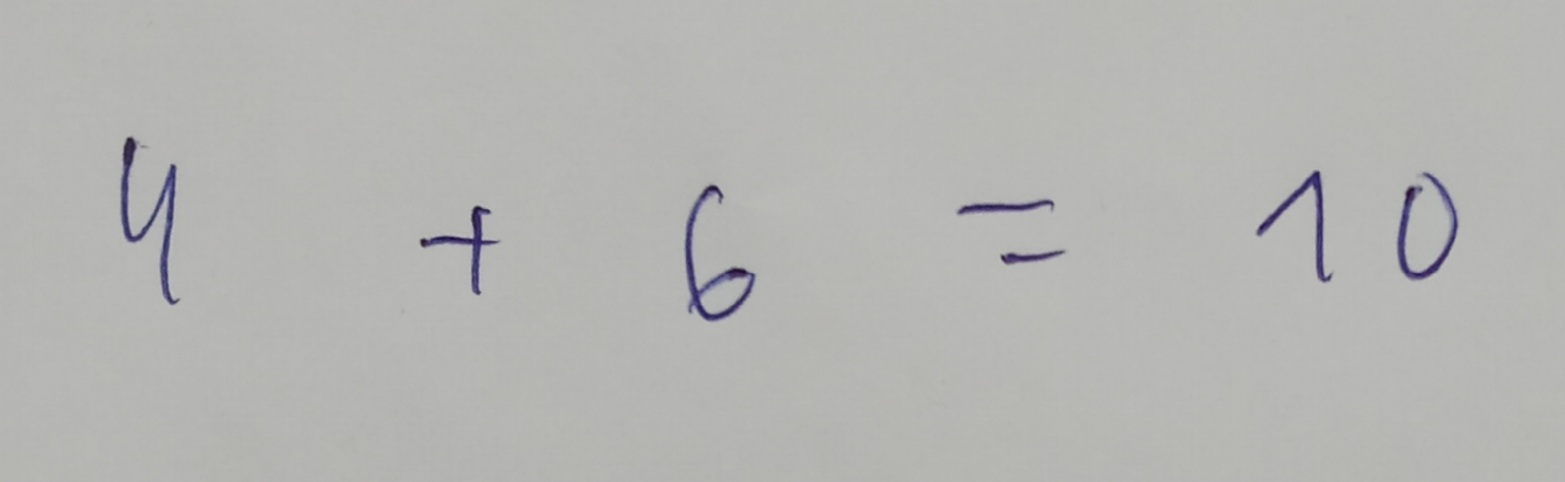 4 + 6 = 10